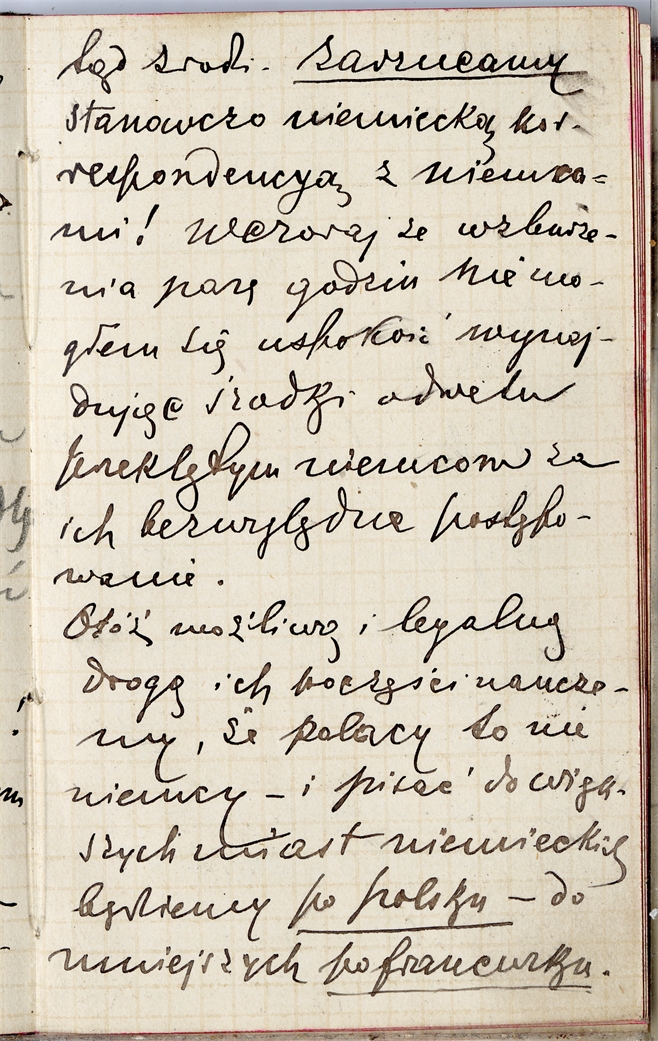 bąd srodk. zarzucamy
stanowczo niemiecką kor.
respondencyą z niemca=
mi! Wczoraj ze wzburze-
nia parę godzin nie mo-
głem się uspokoić wynaj-
dując środki odwetu
przeklętym niemcom za
ich bezwzględne postępo-
wanie.
Otóż możliwą i legalną
drogą ich poczęści naucze-
my, że polacy to nie
niemcy – i pisać do więk-
szych miast niemieckich
będziemy po polsku – do
mniejszych po francuzku.